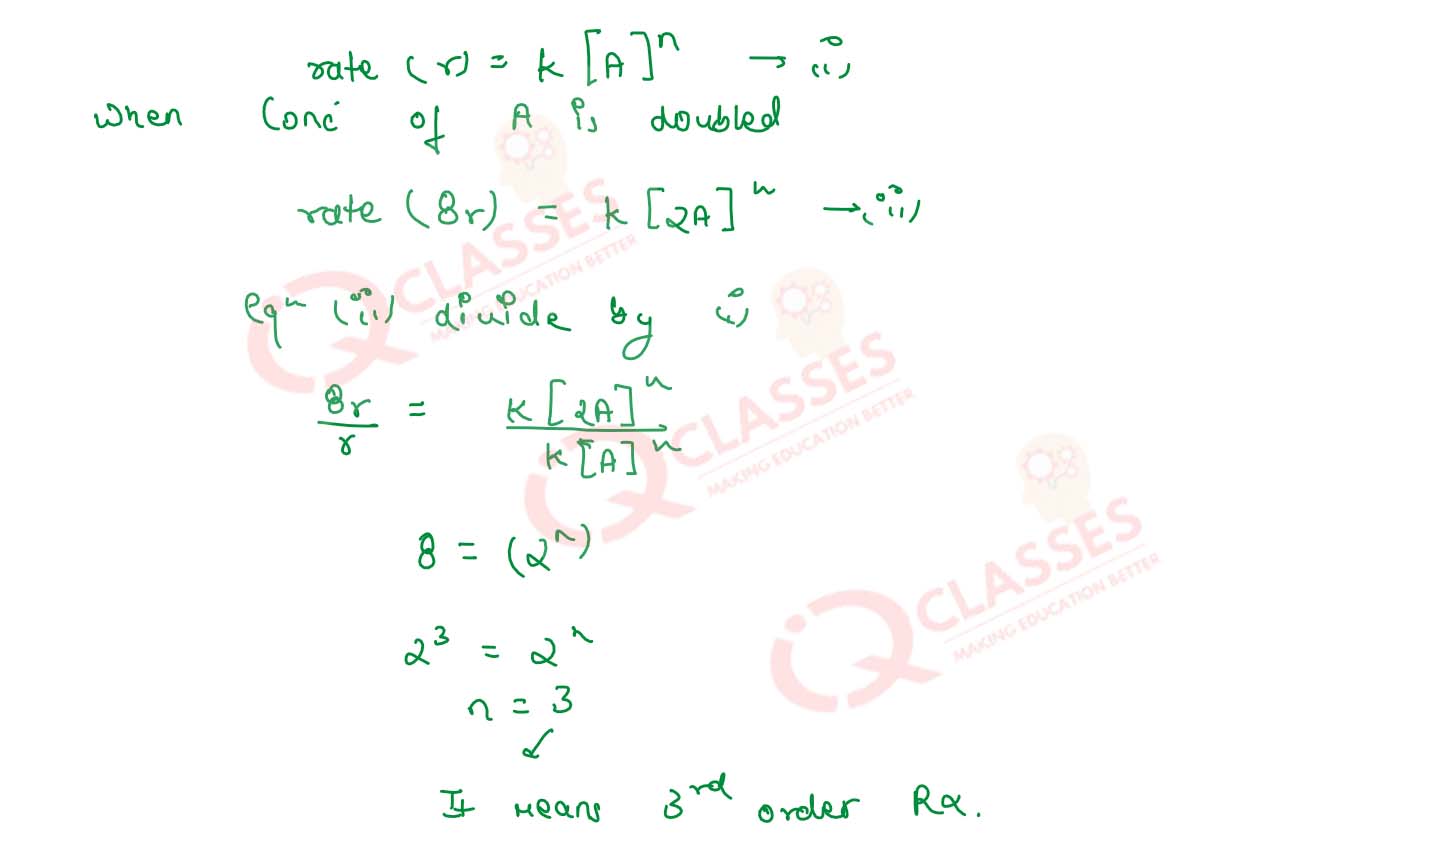 rate (r) = k [A]^n → (i)
when Conc of A is doubled
rate (8r) = k [2A]^n → (ii)
eqn (ii) divide by (i)
8r/r = k[2A]^n / k[A]^n
8 = (2^n)
2^3 = 2^n
n = 3
↙
It means 3rd order Rx.
iQ CLASSES
MAKING EDUCATION BETTER
iQ CLASSES
MAKING EDUCATION BETTER
iQ CLASSES
MAKING EDUCATION BETTER